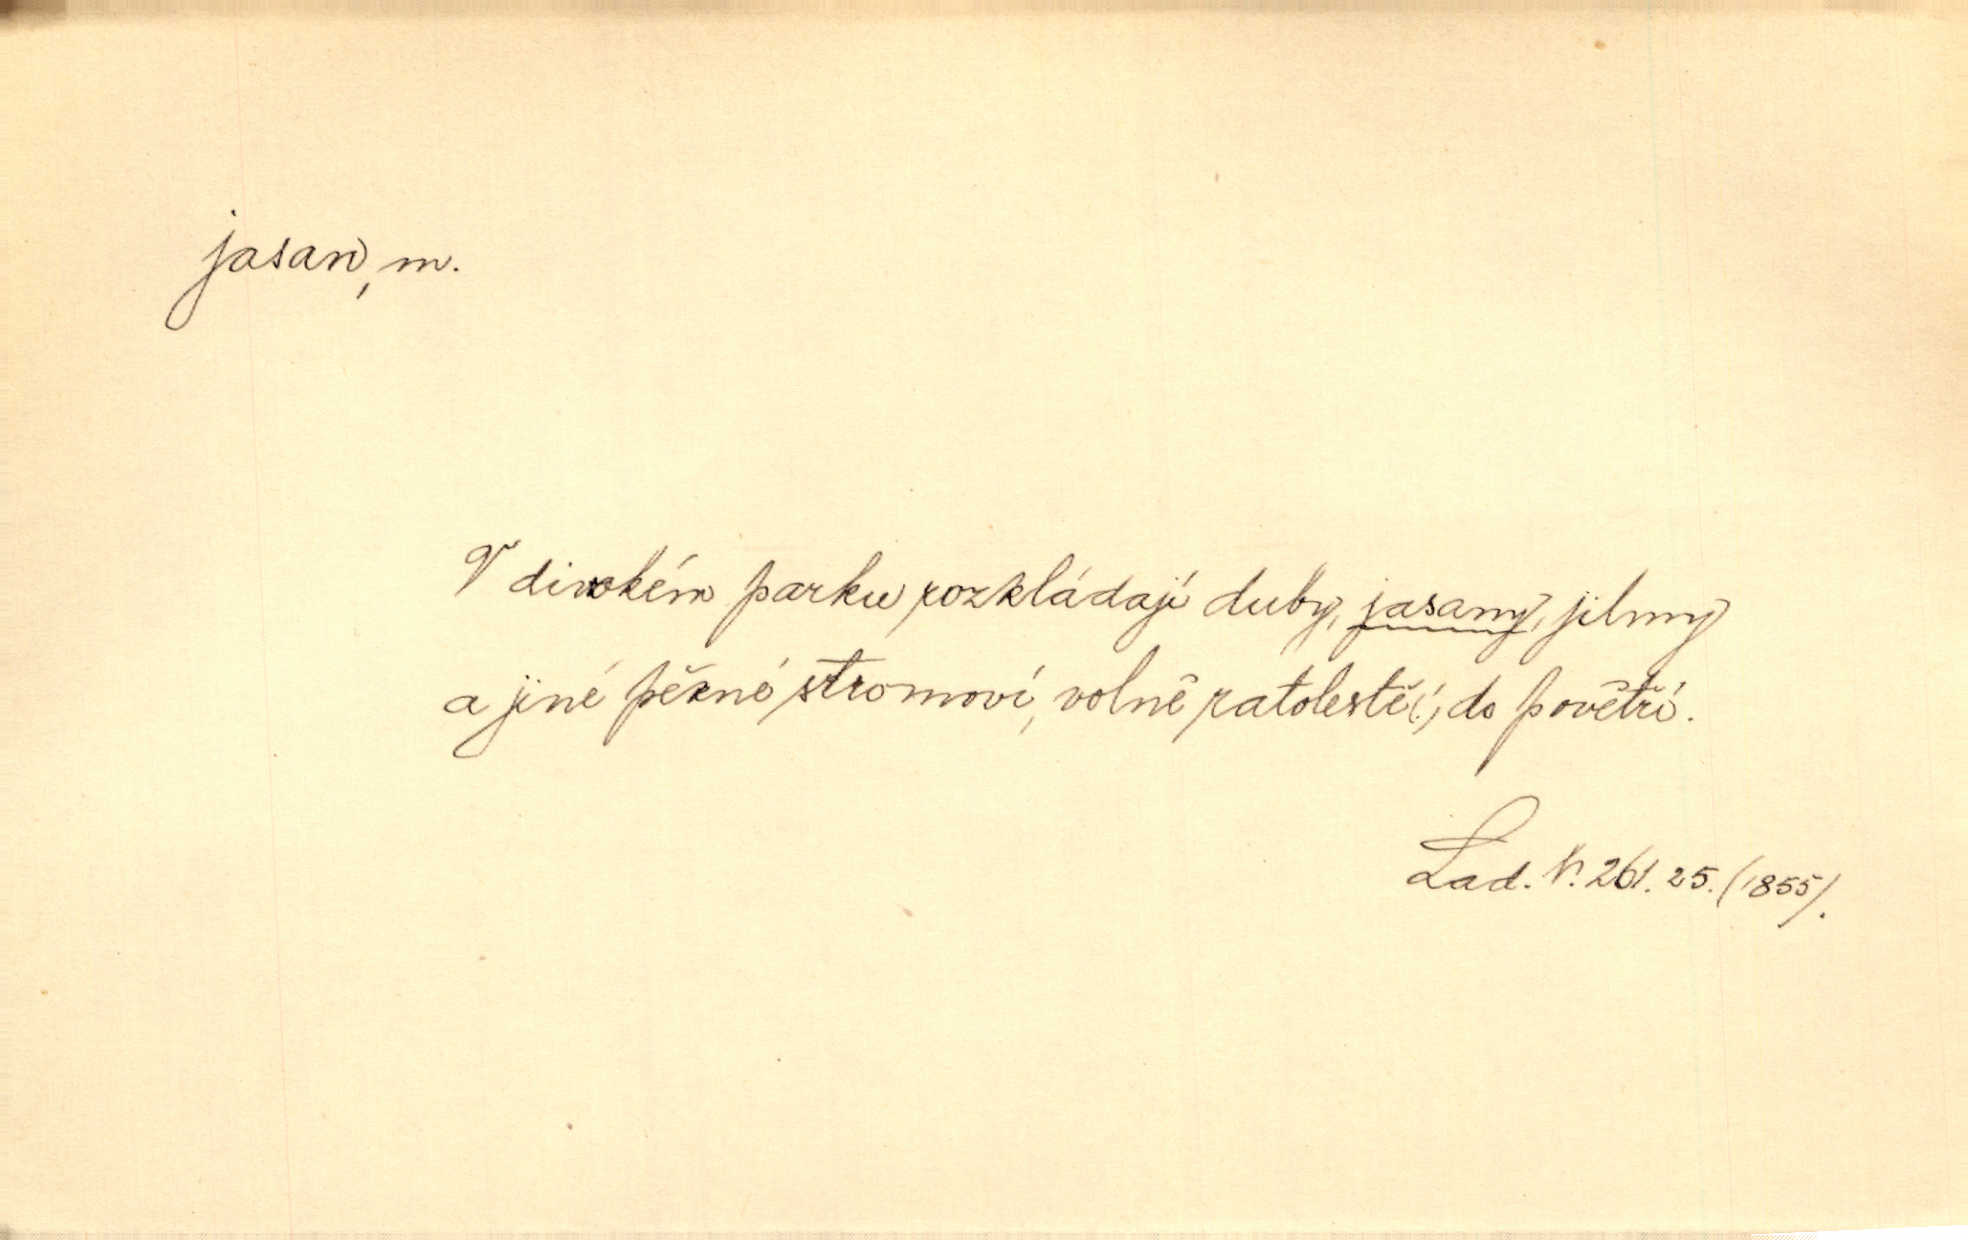 jasan, m.
V divokém parku rozkládají duby, jasany, jilmy
a jiné pěkné stromoví, volně ratolestě(!) do povětří.
Lad. V. 261. 25. (1855).